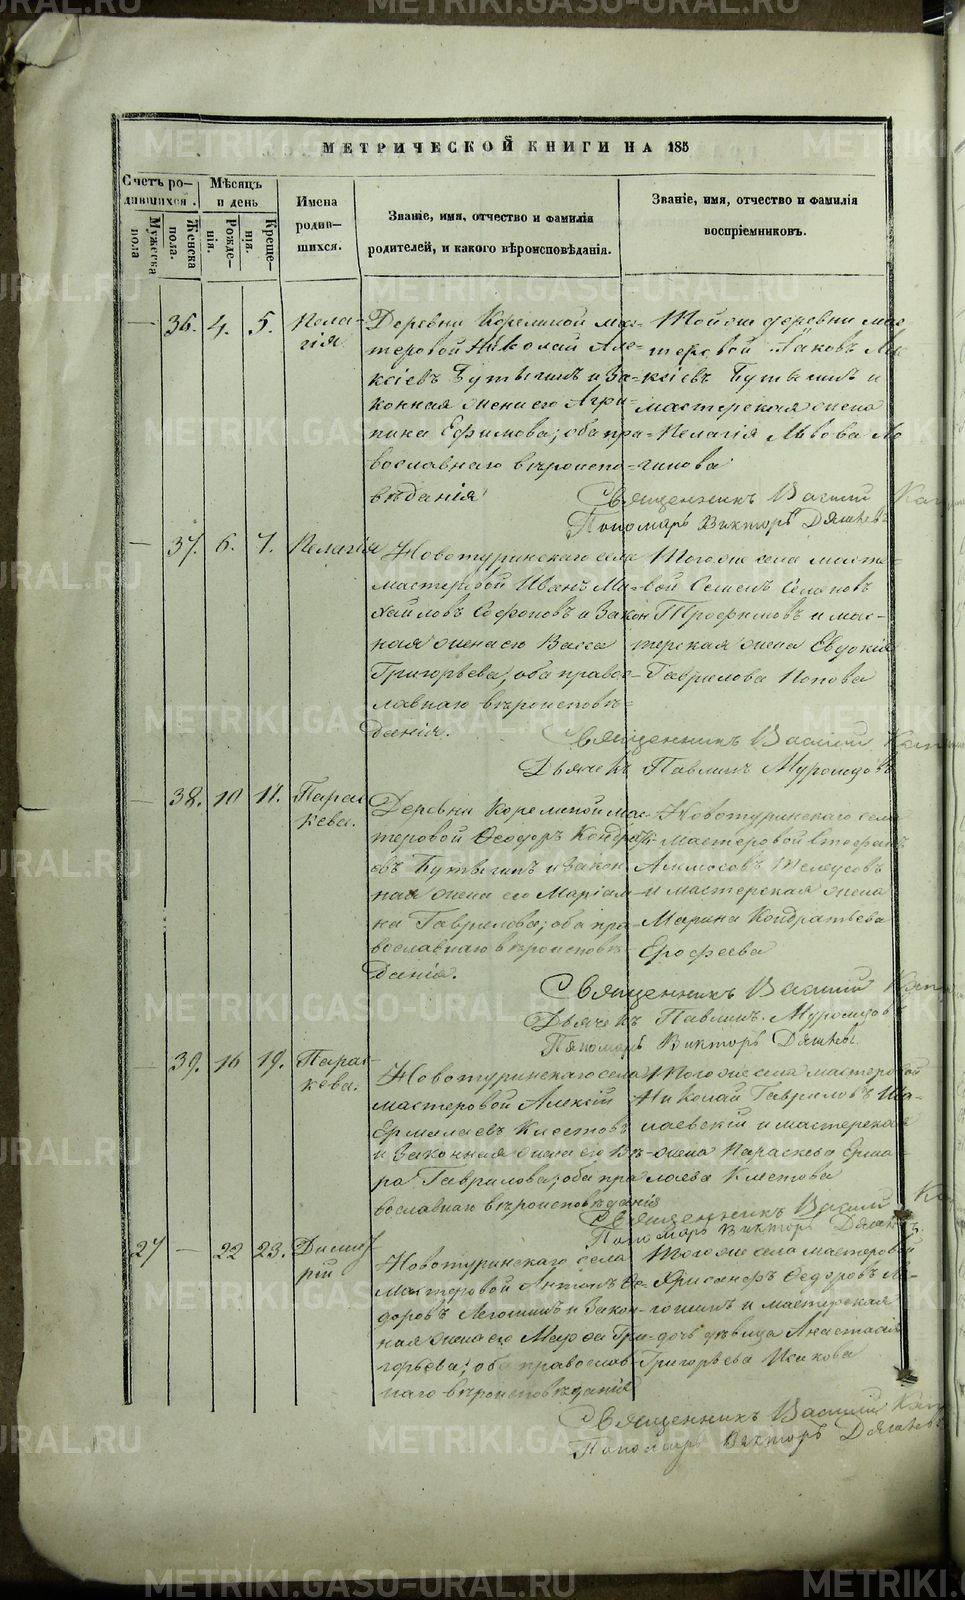 МЕТРИЧЕСКОЙ КНИГИ НА 185
Счетъ ро-
дившихся.
Мѣсяцъ
и день
Имена
родив-
шихся.
Званіе, имя, отчество и фамилія
родителей, и какого вѣроисповѣданія.
Званіе, имя, отчество и фамилія
воспріемниковъ.
Мужеска
пола
Женска
пола.
Рожде-
нія.
Креще-
нія.
— 36. 4. 5. Пела-
гія
Деревни мас-
теровой Николай Але-
ксіевъ и За-
конная жена его Агри-
пина Ефимова; оба пра-
вославнаго вѣроиспо-
вѣданія
Той же деревни мас-
теровой Іаковъ Але-
ксіевъ и
мастерская жена
Пелагія Львова Ло-
гинова
Священникъ Василій
Пономарь Викторъ
— 37. 6. 7. Пелагія
Новотуринскаго села
мастеровой Иванъ Ми-
хайловъ и Закон-
ная жена его Васса
Григорьева; оба право-
славнаго вѣроисповѣ-
данія.
Того же села масте-
ровой Семенъ
Трофимовъ и мас-
терская жена Евдокія
Гаврилова Попова
Священникъ Василій
Дьячекъ Павлинъ
— 38. 10 11. Парас-
кева.
Деревни мас-
теровой Ѳеодоръ Кондрать-
евъ и закон-
ная жена его Маріам-
на Гаврилова; оба пра-
вославнаго вѣроисповѣ-
данія.
Новотуринскаго села
мастеровой Стефанъ
и мастерская жена
Марина Кондратьева
Ерофеева
Священникъ Василій
Дьячекъ Павлинъ
Пономарь Викторъ
— 39. 16 19. Парас-
кева.
Новотуринскаго села
мастеровой Алексій
Ермолаевъ Клестовъ
и Законная жена его Вѣ-
ра Гаврилова; оба пра-
вославнаго вѣроисповѣданія
Того же села мастеровой
Николай Гавриловъ
и мастерская
жена Параскева Ермо-
лаева Клестова
Священникъ Василій
Пономарь Викторъ
27 — 22 23. Димит-
рій
Новотуринскаго села
мастеровой Антонъ Ѳе-
доровъ Легошинъ и Закон-
ная жена его Марѳа Гри-
горьева; оба православ-
наго вѣроисповѣданія
Того же села мастеровой
Хрисанфъ Ѳедоровъ Ле-
гошинъ и мастерская
дочь дѣвица Анастасія
Григорьева Исакова
Священникъ Василій
Пономарь Викторъ
METRIKI.GASO-URAL.RU